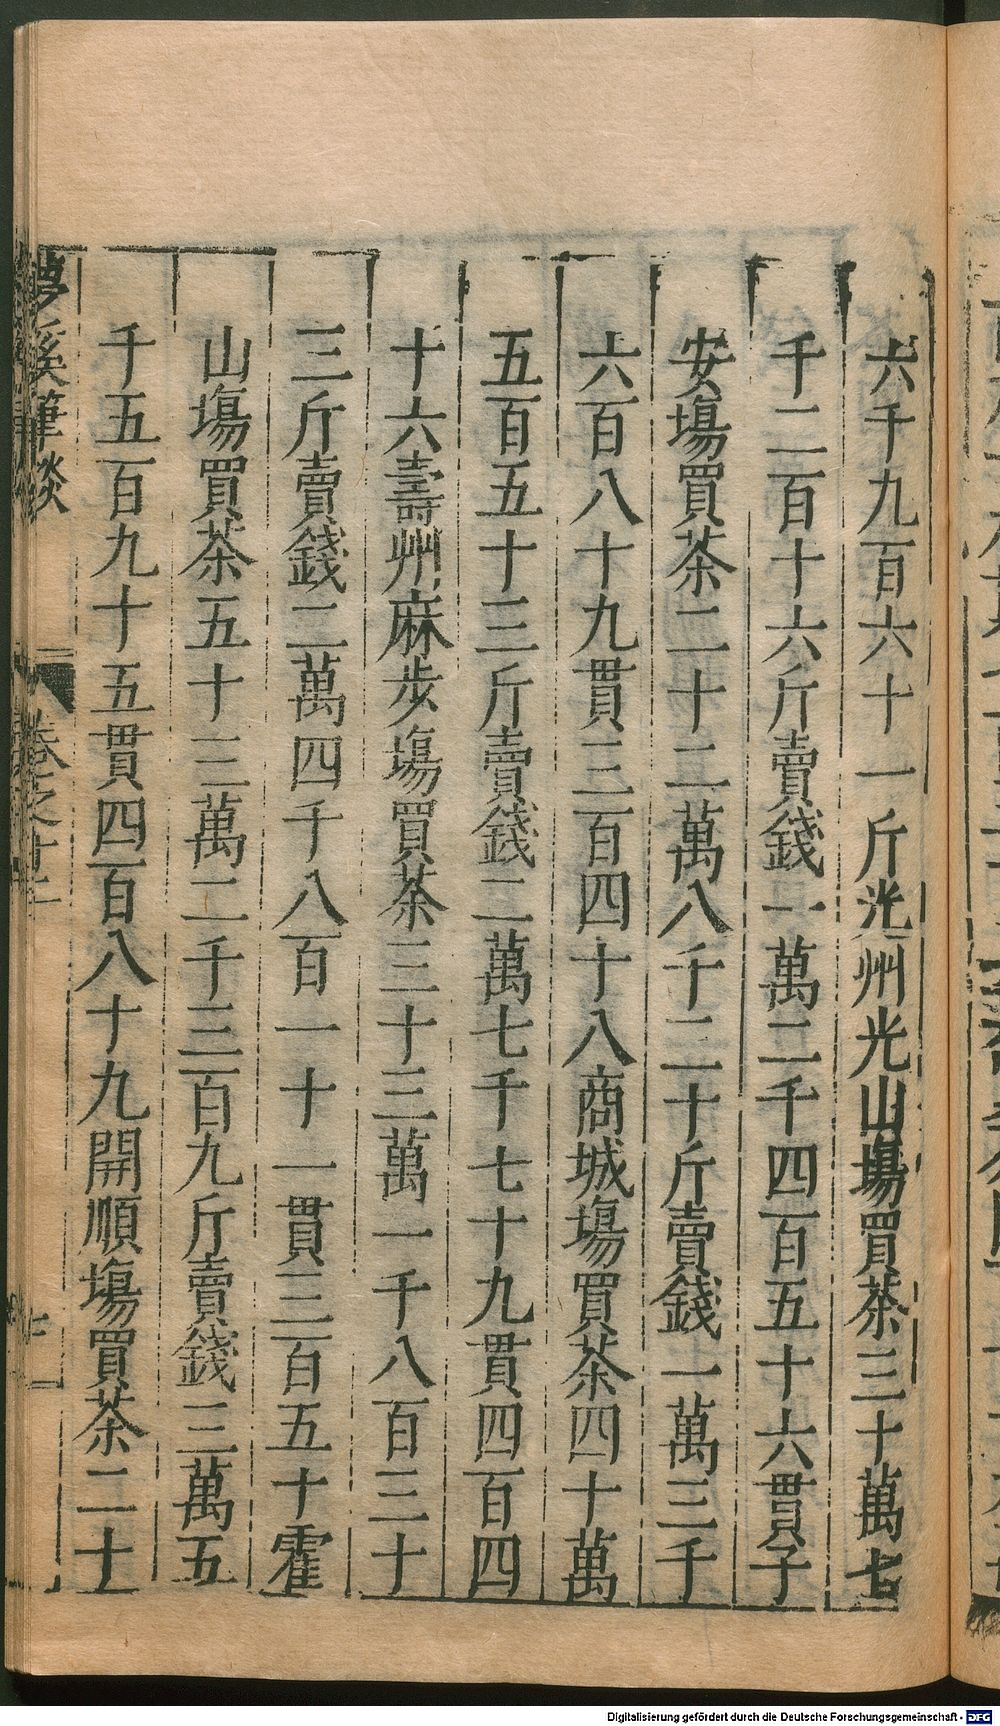 六千九百六十一斤光州光山場買茶三十萬七
千二百十六斤賣錢一萬二千四百五十六貫子
安場買茶二十二萬八千二十斤賣錢一萬三千
六百八十九貫三百四十八商城場買茶四十萬
五百五十三斤賣錢二萬七千七十九貫四百四
十六壽州麻步場買茶三十三萬一千八百三十
三斤賣錢三萬四千八百一十一貫三百五十霍
山場買茶五十三萬二千三百九斤賣錢三萬五
千五百九十五貫四百八十九開順場買茶二十
夢溪筆談 卷之十二
Digitalisierung gefördert durch die Deutsche Forschungsgemeinschaft - DFG